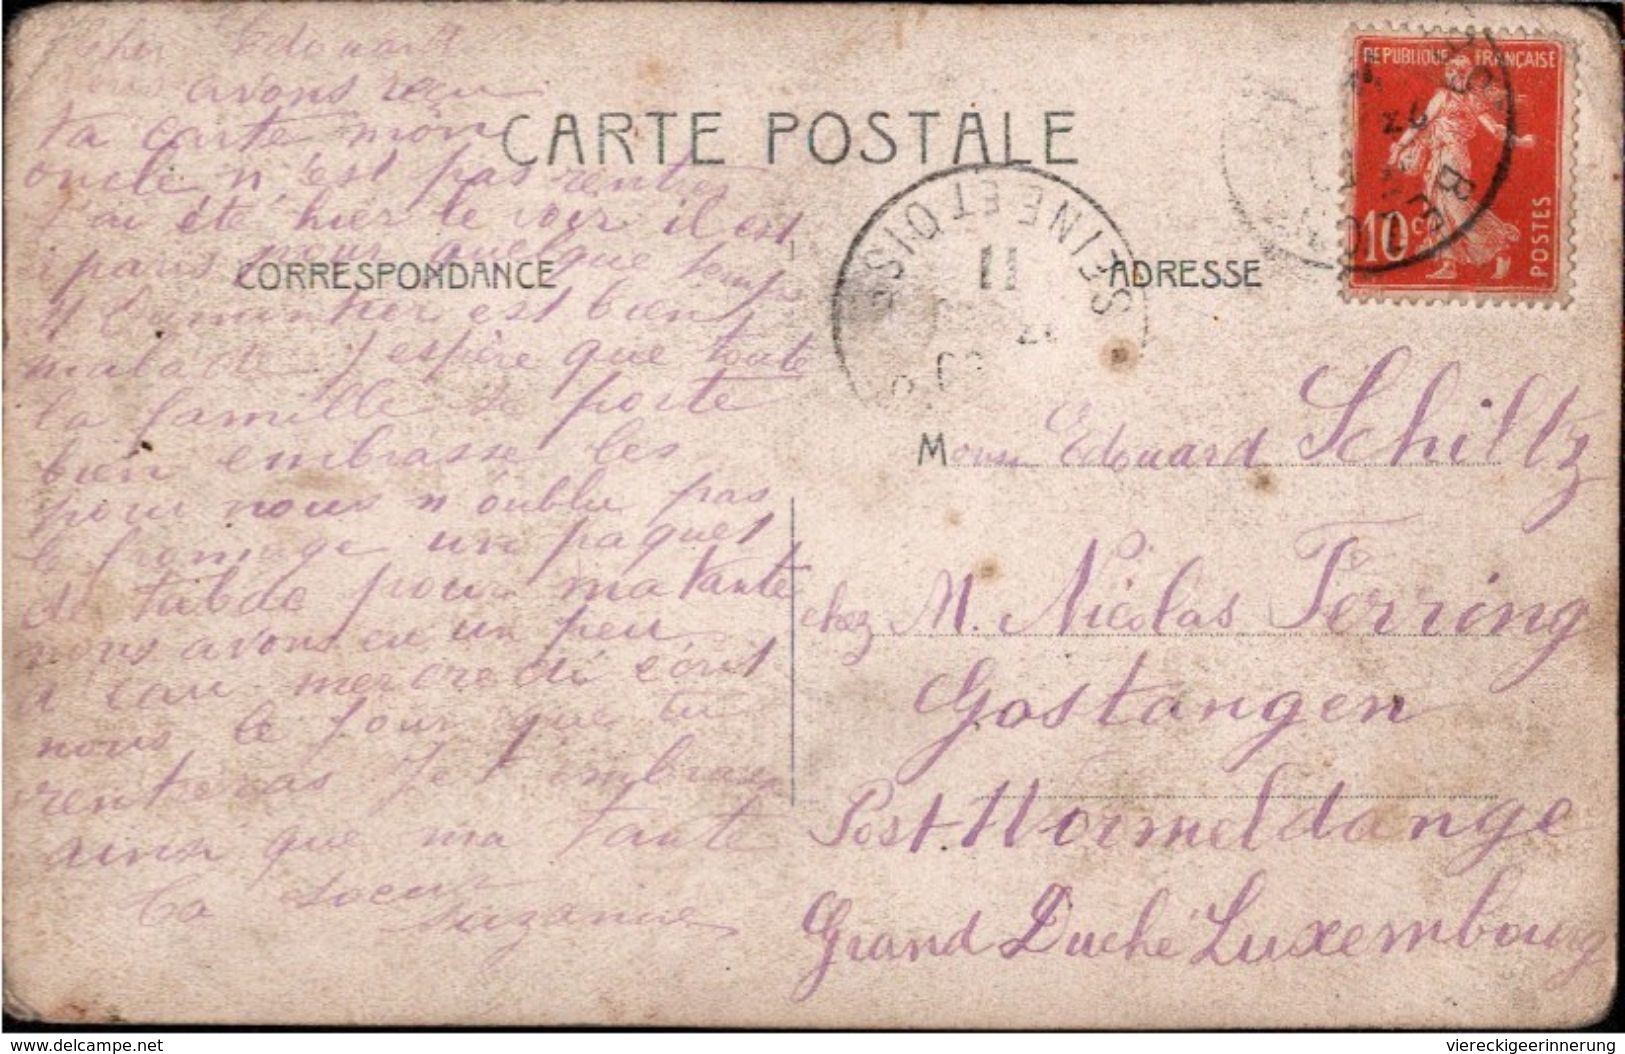 cher Edouard
avons reçu
ta carte mon
oncle n'est pas rentré
j'ai été hier le voir il est
paris pour quelque temps
est bien
malade J'espère que toute
la famille se porte
bien embrasse les
pour nous n'oublie pas
le fromage un paquet
de pour ma tante
nous avons eu un peu
d'eau mercredi écrit
nous le jour que tu
rentreras Je t'embrasse
ainsi que ma tante
Ta soeur
Suzanne
CARTE POSTALE
CORRESPONDANCE
ADRESSE
SEINE ET OISE
11
REPUBLIQUE FRANÇAISE
10c
POSTES
Monsr Edouard Schiltz
chez M. Nicolas Ferring
Gostangen
Post Wormeldange
Grand Duché Luxembourg
delcampe.net
viereckigeerinnerung